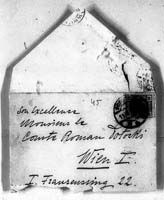 Son Excellence
45
Monsieur le
Comte Roman Potocki
Wien I.
I. Franzensring 22.